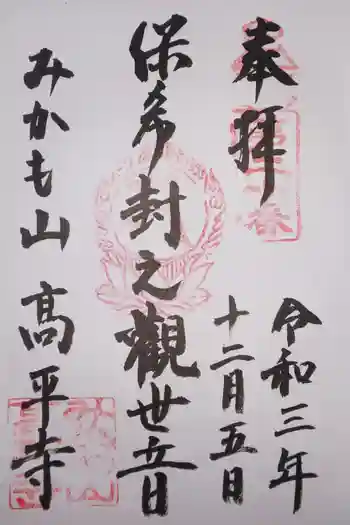 奉拝
令和三年
十二月五日
保希封之觀世音
みかも山 高平寺